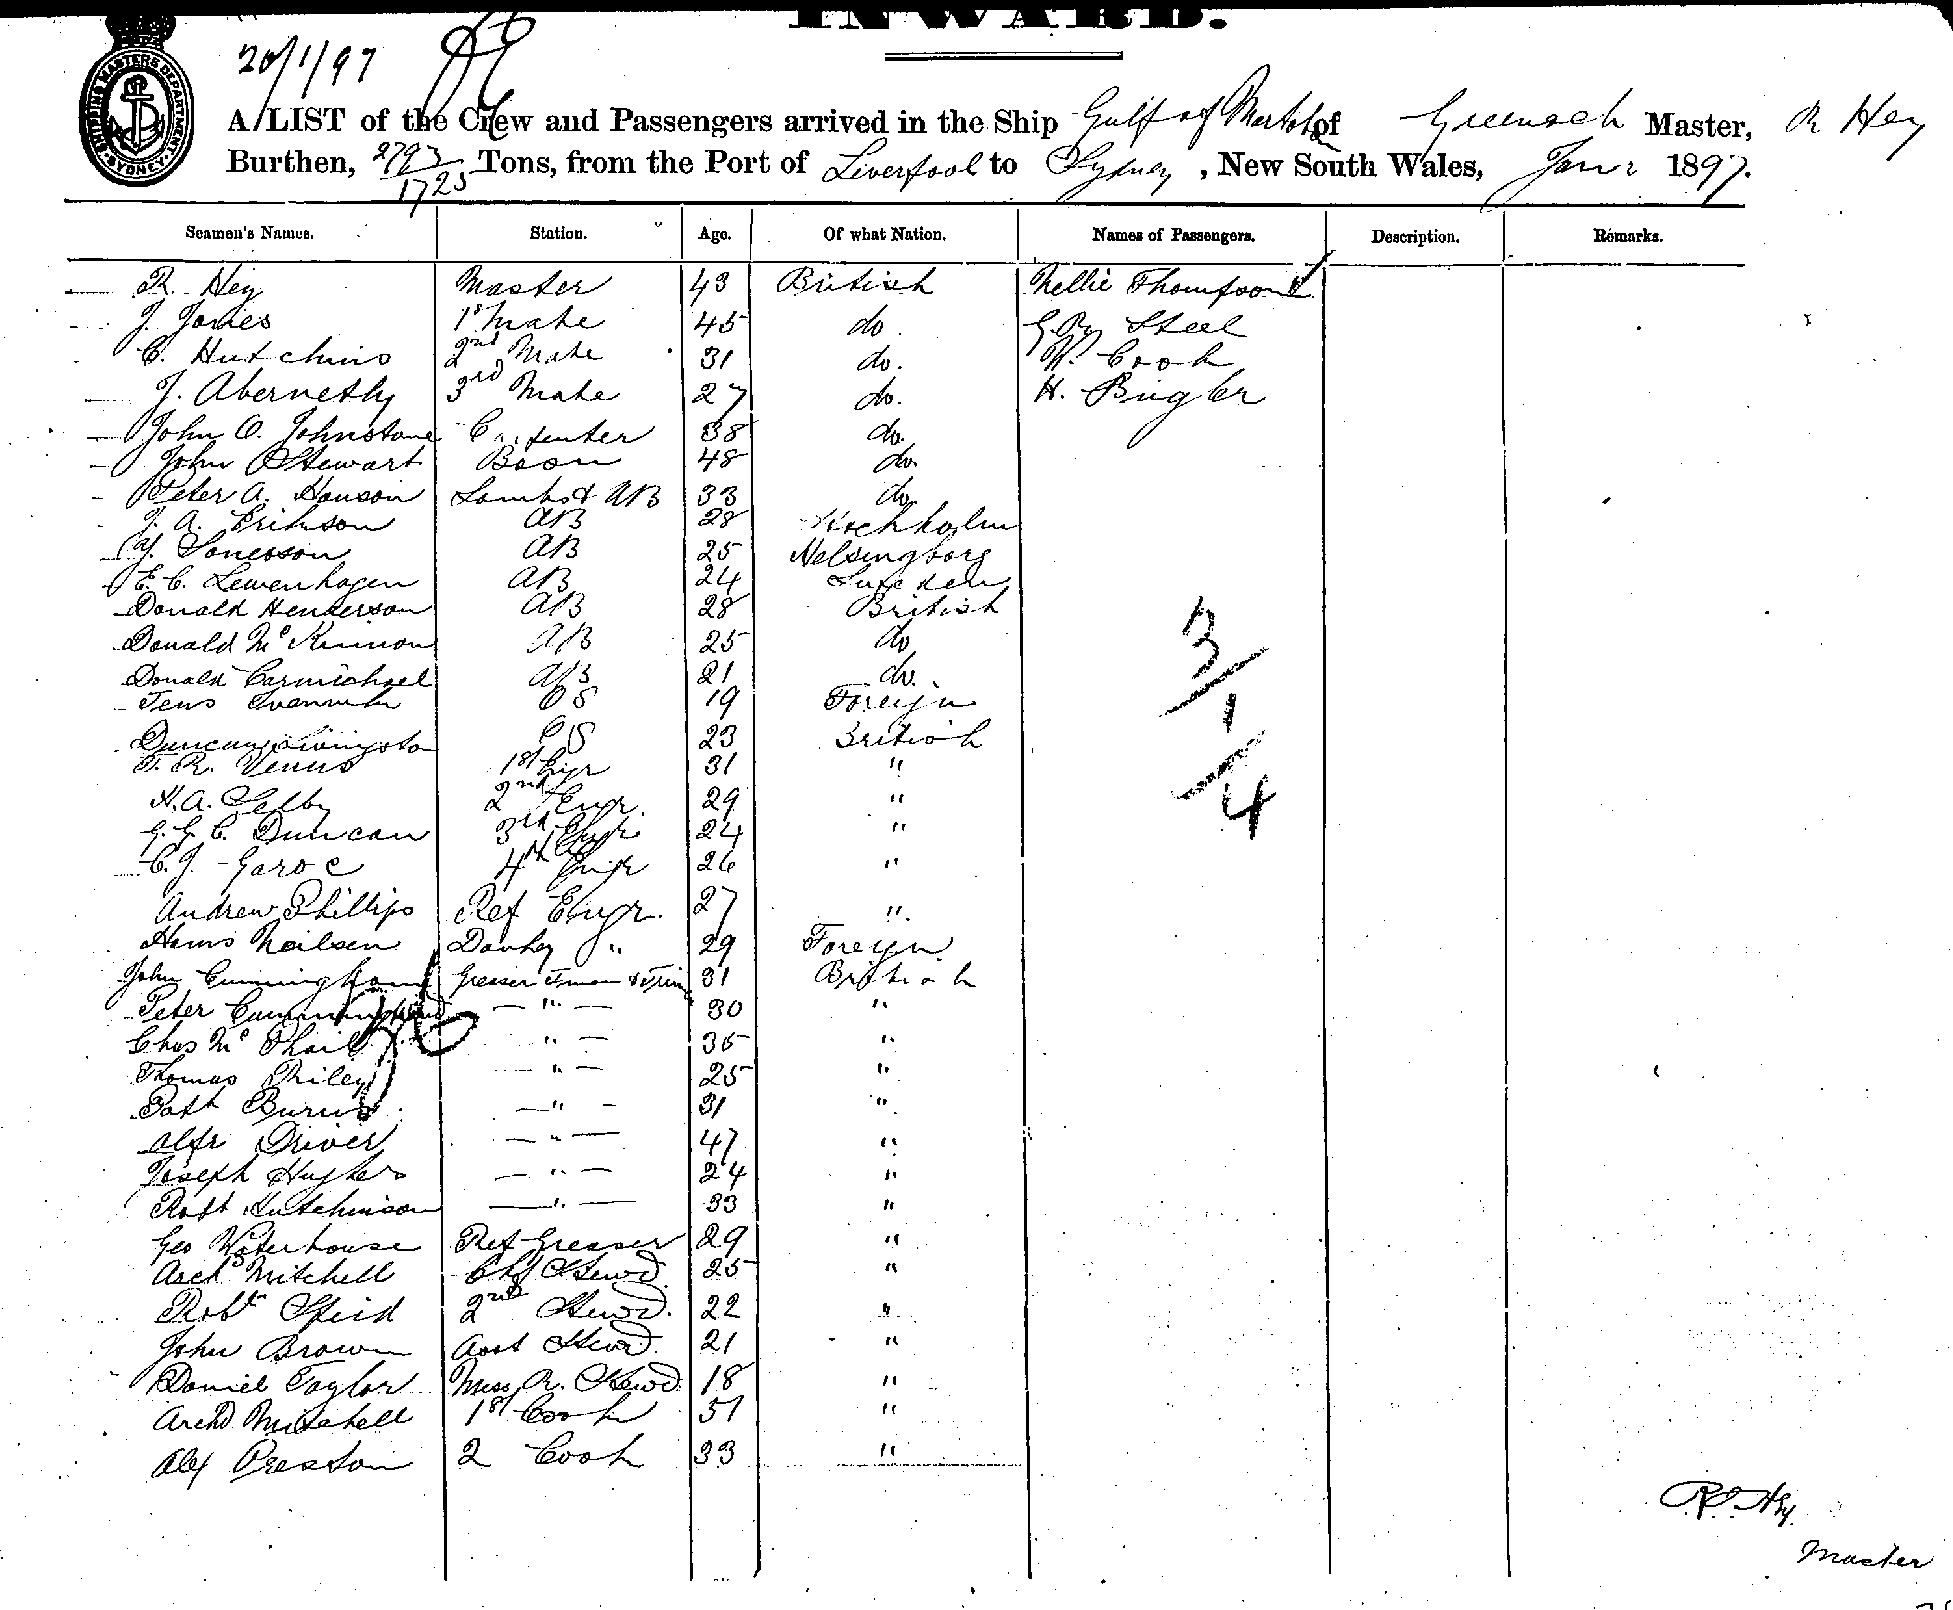 INWARD.
20/1/97
SHIPPING MASTERS DEPARTMENT SYDNEY
A LIST of the Crew and Passengers arrived in the Ship Gulf of of Greenock Master, R Hey
Burthen, 2793/1725 Tons, from the Port of Liverpool to Sydney, New South Wales, Jany 1897.
Seamen's Names. Station. Age. Of what Nation. Names of Passengers. Description. Remarks.
R. Hey Master 43 British Nellie Thompson
J. Jones 1st Mate 45 do. G. Ry Steel
C. Hutchins 2nd Mate 31 do. W. Cook
J. Abernethy 3rd Mate 27 do. H. Bugler
John O. Johnstone Carpenter 38 do.
John Stewart Bosn 48 do.
Peter A. Hanson Lamps & AB 33 do.
J. A. Erikson AB 28 Stockholm
Y. Sonesson AB 25 Helsingborg
E. C. Lewenhagen AB 24 Sweden
Donald Henderson AB 28 British
Donald McKinnon AB 25 do
Donald Carmichael AB 21 do.
Jens OS 19 Foreign
Duncan Livingston OS 23 British
T. R. Venus 1st Engr 31 "
H. A. Selby 2nd Engr. 29 "
G. G. C. Duncan 3rd Engr 24 "
C. J. Garoe 4th Engr 26 "
Andrew Phillips Ref Engr. 27 "
Hans Neilsen Donkey " 29 Foreign
John Cunningham Greaser Fman & Trim 31 British
Peter Cunningham — " — 30 "
Chas McPhail " — 35 "
Thomas Riley — " — 25 "
Patk Burns — " — 31 "
Alfr Driver — " — 47 "
Joseph Hughes — " — 24 "
Robt Hutchinson — " — 33 "
Geo Waterhouse Ref Greaser 29 "
Archd Mitchell Chf Stewd 25 "
Robt Speid 2nd Stewd. 22 "
John Brown Asst Stewd. 21 "
Daniel Taylor Mess R. Stewd. 18 "
Archd Mitchell 1st Cook 51 "
Alex Preston 2 Cook 33 "
3/1/4
R. Hey.
Master